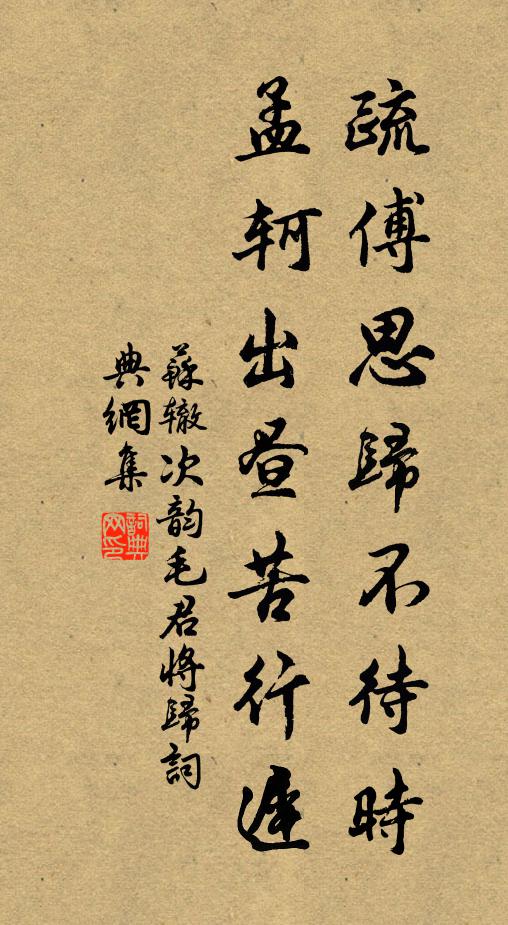 疏傅思歸不待時
孟軻出晝苦行遲
蘇轍次韵毛君將歸詞
典網集
詞典
网印